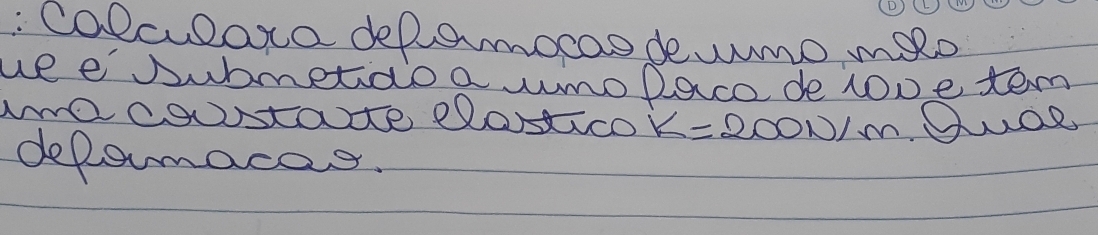 : Calculara deformacao de uma mola
ue é submetido a uma Força de 100 e tem
uma constante elastico K=200N/m. Qual
deformacao.